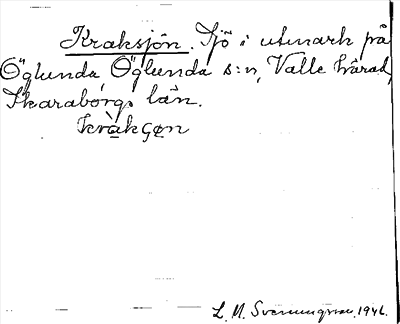 Kraksjön. Sjö i utmark på
Öglunda, Öglunda s:n, Valle härad,
Skaraborgs län.
kràkʂøn
L. M. Svenungsson, 1946.